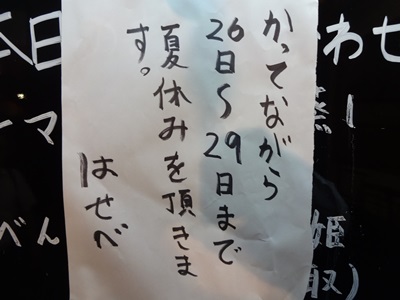 かってながら
26日～29日まで
夏休みを頂きま
す。
はせべ
本日
わせ
マ
べん
姫
取）